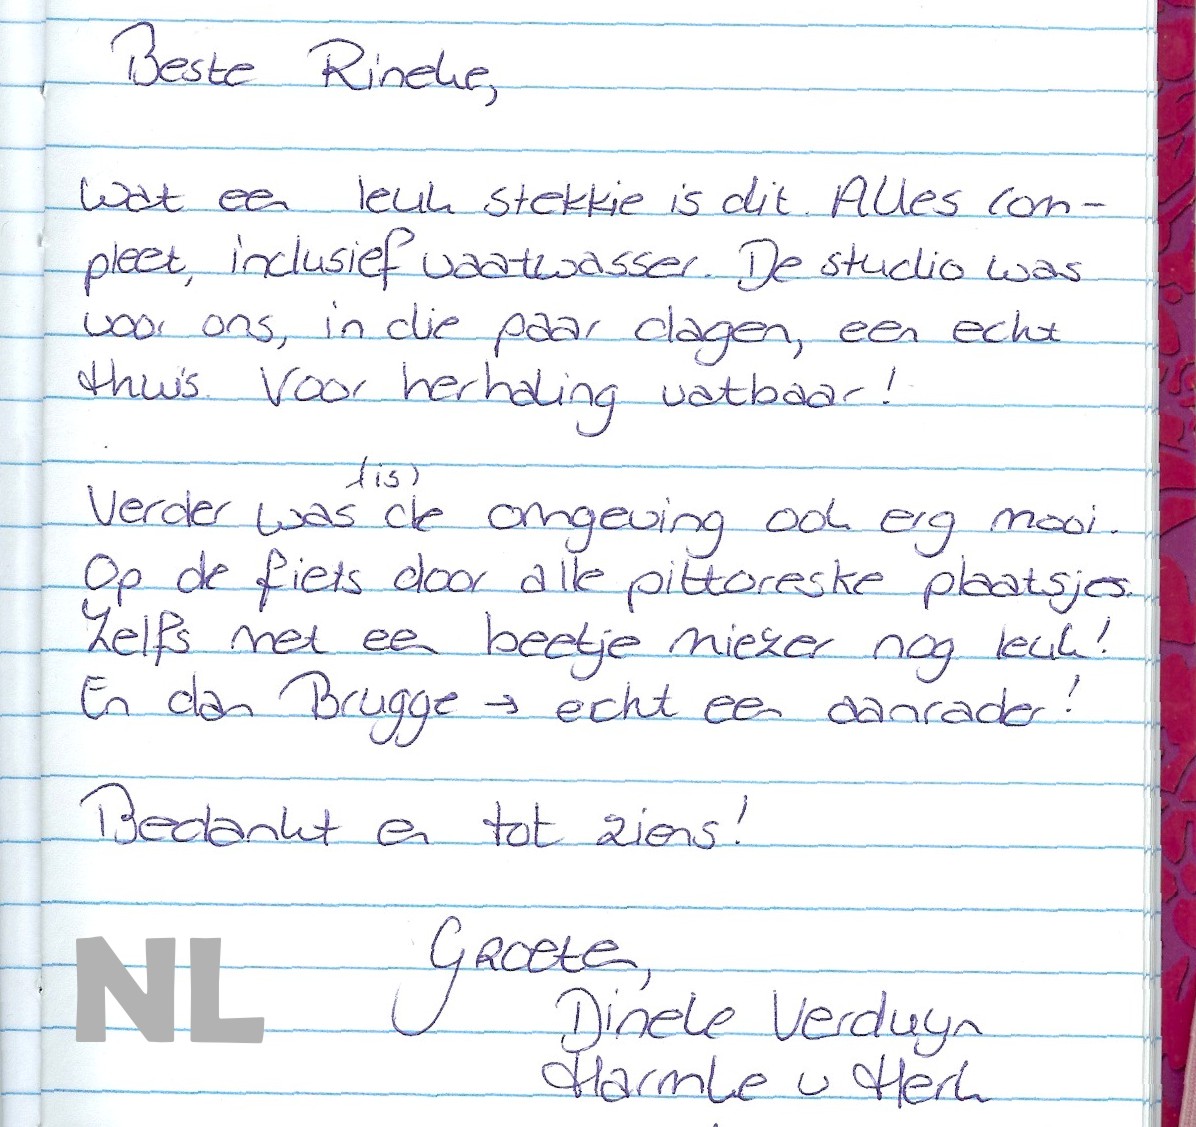 Beste Rineke,
Wat een leuk stekkie is dit. Alles com-
pleet, inclusief vaatwasser. De studio was
voor ons, in die paar dagen, een echt
thuis. Voor herhaling vatbaar!
(is)
Verder was de omgeving ook erg mooi.
Op de fiets door alle pittoreske plaatsjes.
Zelfs met een beetje miezer nog leuk!
En dan Brugge → echt een aanrader!
Bedankt en tot ziens!
Groeten,
NL
Dineke Verduyn
Harmke v Herk